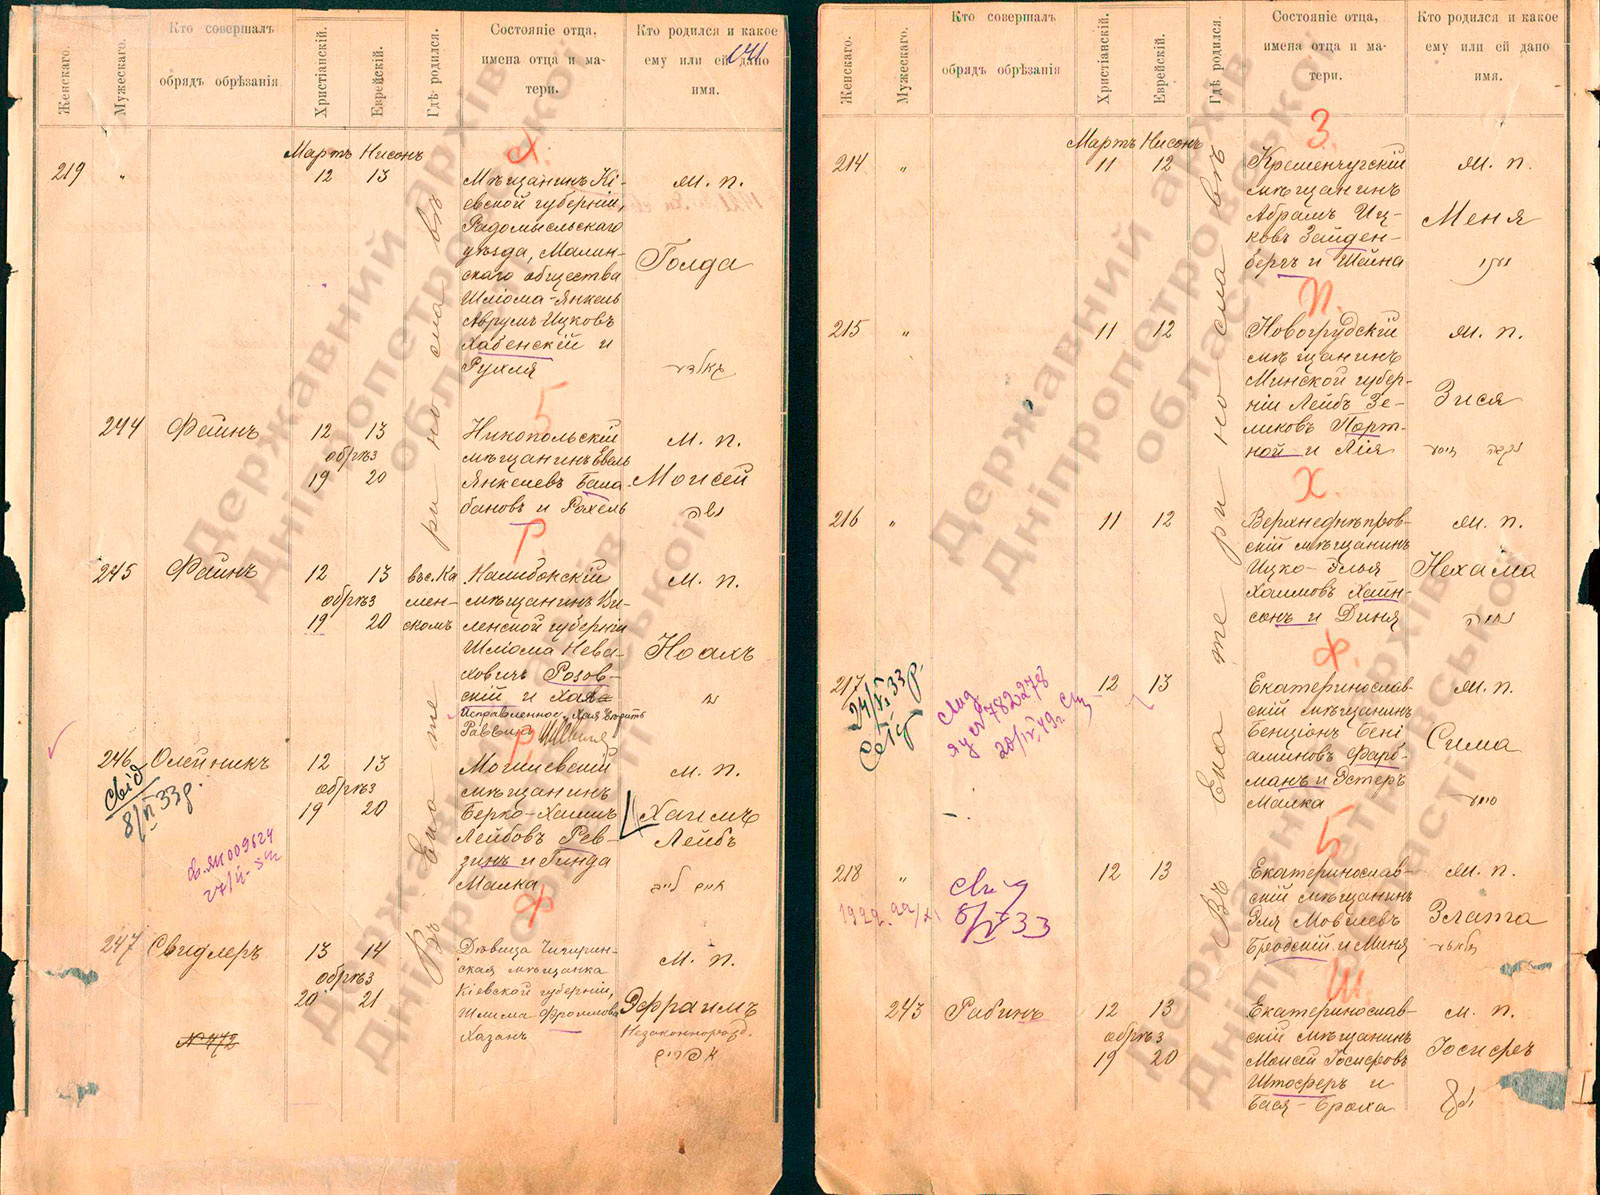 Женскаго.
Мужескаго.
Кто совершалъ
обрядъ обрѣзанія
Христіанскій.
Еврейскій.
Гдѣ родился.
Состояніе отца,
имена отца и ма-
тери.
Кто родился и какое
ему или ей дано
имя.
141
Мартъ Нисонъ
Х.
219 „ 12 13
Мѣщанинъ Кі-
евской губерніи,
Радомысльскаго
уѣзда, Малин-
скаго общества
Шліома-Янкель
Аврумъ Ицковъ
Хабенскій и
Рухля
м. п.
Голда
Б
244 Файнъ 12 13
обрѣз
19 20
Никопольскій
мѣщанинъ Евель
Янкелевъ Бала-
бановъ и Рахель
м. п.
Моисей
משה
Р.
245 Файнъ 12 13
обрѣз
19 20
въ с. Ка
мен-
скомъ
Налибокскій
мѣщанинъ Ви-
ленской губерніи
Шліома Нева-
ховичъ Розов-
скій и Хая
Исправленное „Хая“ вѣрить
Раввинъ
м. п.
Ноахъ
נח
Р.
246 Олейникъ 12 13
обрѣз
19 20
свід
8/VI 33 р.
Могилевскій
мѣщанинъ
Берко-Хаимъ
Лейбовъ Рев-
зинъ и Гинда
Малка
м. п.
Хаимъ
Лейбъ
חיים לייב
247 Свидлеръ 13 14
обрѣз
20 21
№ 472
Дѣвица Чигирин-
ская мѣщанка
Кіевской губерніи,
Шлима Фроимова
Хазанъ
м. п.
Эфраимъ
Незаконнорожд.
אפרים
Въ Екатеринославѣ
Женскаго.
Мужескаго.
Кто совершалъ
обрядъ обрѣзанія
Христіанскій.
Еврейскій.
Гдѣ родился.
Состояніе отца,
имена отца и ма-
тери.
Кто родился и какое
ему или ей дано
имя.
Мартъ Нисонъ
З.
214 „ 11 12
Кременчугскій
мѣщанинъ
Абрамъ Иц-
ковъ Зайден-
бергъ и Шейна
м. п.
Меня
П.
215 „ 11 12
Новогрудскій
мѣщанинъ
Минской губер-
ніи Лейбъ Зе-
ликовъ Порт-
ной и Лія
м. п.
Зися
Х.
216 „ 11 12
Верхнеднѣпров-
скій мѣщанинъ
Ицко-Элья
Хаимовъ Хаин-
сонъ и Диня
м. п.
Нехама
נחמה
Ф.
217 12 13
24/VI 33 р.
Екатеринослав-
скій мѣщанинъ
Бенціонъ Бені
аминовъ Фарб-
манъ и Эстеръ
Малка
м. п.
Сима
סימע
Б
218 „ 12 13
Екатеринослав-
скій мѣщанинъ
Эля Мовшевъ
Бродскій и Миня
м. п.
Злата
Ш.
243 Рабинъ 12 13
обрѣз
19 20
Екатеринослав-
скій мѣщанинъ
Моисей Іосифовъ
Штосферъ и
Бася-Броха
м. п.
Іосифъ
יוסף
Въ Екатеринославѣ
Державний архів
Дніпропетровської
області